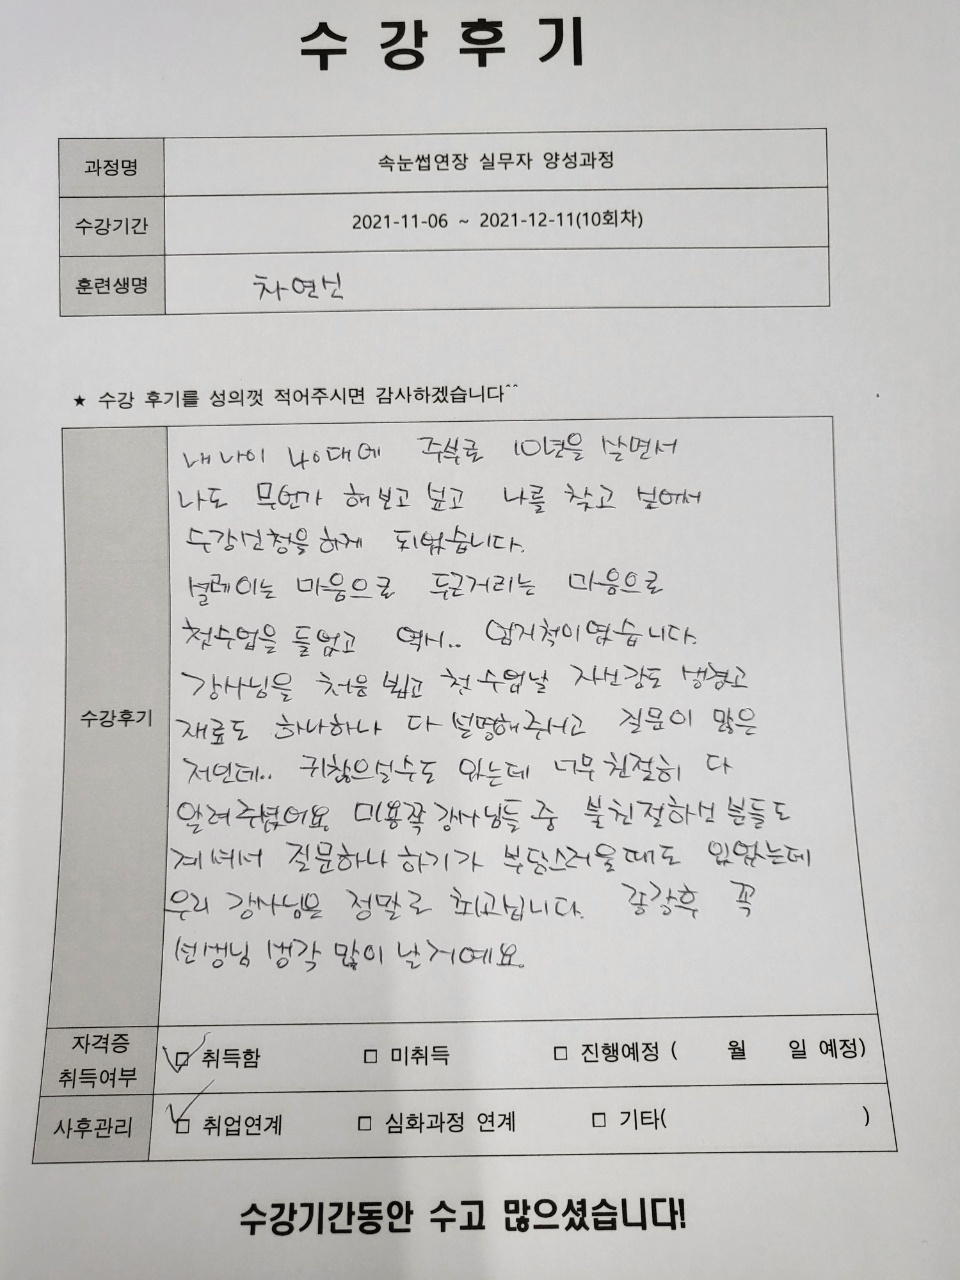 수강후기
과정명 속눈썹연장 실무자 양성과정
수강기간 2021-11-06 ~ 2021-12-11(10회차)
훈련생명 차연신
★ 수강 후기를 성의껏 적어주시면 감사하겠습니다^^
수강후기
내 나이 40대에 주부로 10년을 살면서
나도 무언가 해보고 싶고 나를 찾고 싶어서
수강신청을 하게 되었습니다.
설레이는 마음으로 두근거리는 마음으로
첫수업을 들었고 역시.. 엄지척이였습니다.
강사님을 처음 뵙고 첫 수업날 자신감도 생겼고
재료도 하나하나 다 설명해주시고 질문이 많은
저인데.. 귀찮으실수도 있는데 너무 친절히 다
알려주셨어요. 미용쪽 강사님들 중 불친절하신 분들도
계셔서 질문하나 하기가 부담스러울때도 있었는데
우리 강사님은 정말로 최고십니다. 종강후 꼭
선생님 생각 많이 날거예요.
자격증 취득여부 □ 취득함 □ 미취득 □ 진행예정 ( 월 일 예정)
사후관리 □ 취업연계 □ 심화과정 연계 □ 기타( )
수강기간동안 수고 많으셨습니다!